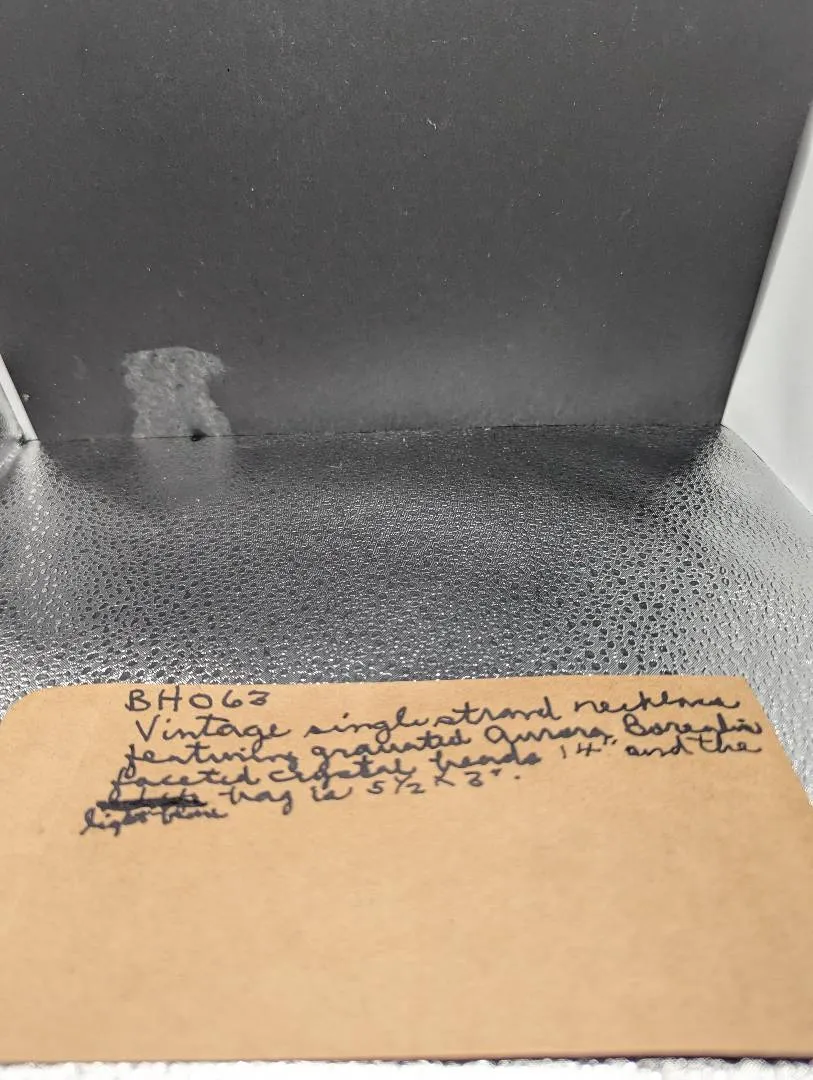 BH063
Vintage single strand necklace
featuring graduated Aurora Borealis
faceted crystal beads 14" and the
tray is 5 1/2 x 3".
light